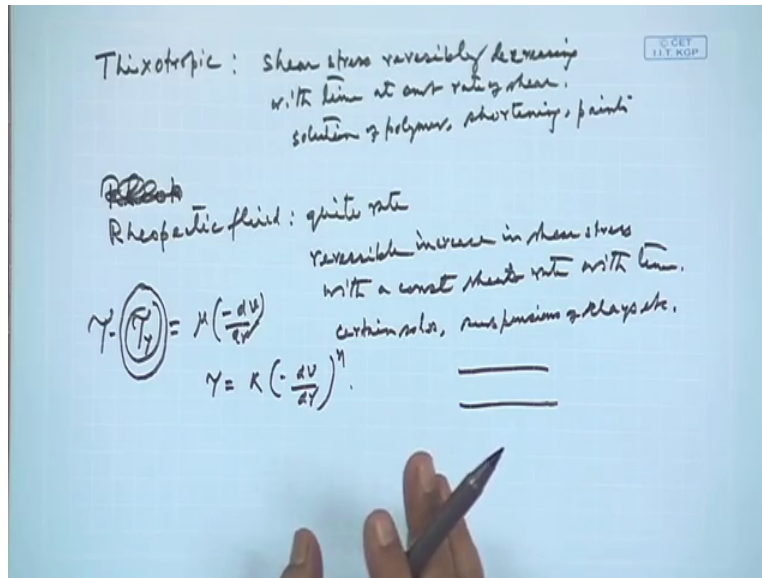 © CET
I.I.T. KGP
Thixotropic : shear stress reversibly decreasing
with time at const rate of shear.
solution of polymer, shortening, paints
Rheopectic fluid : quite rare
reversible increase in shear stress
with a const shear rate with time.
certain sols, suspensions of clays etc.
τ - τy = μ(-dv/dr)
τ = K(-dv/dr)^n.